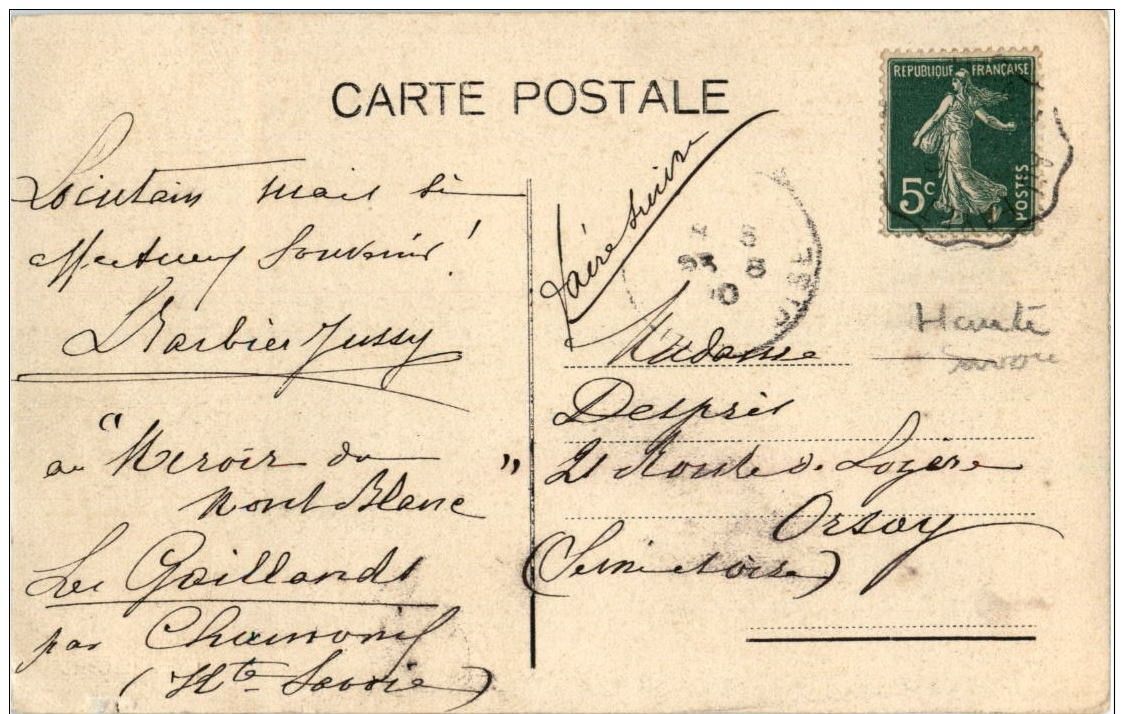 CARTE POSTALE
REPUBLIQUE FRANÇAISE
5c
POSTES
Lointain mais si
affectueux souvenir!
LBarbier Jussy
au "Miroir du
Mont Blanc"
Les Gaillands
par Chamonix
(Hte Savoie)
faire suivre
8
OISE
Madame
Després
21 Route de Lozère
Orsay
(Seine et Oise)
Haute
Savoie